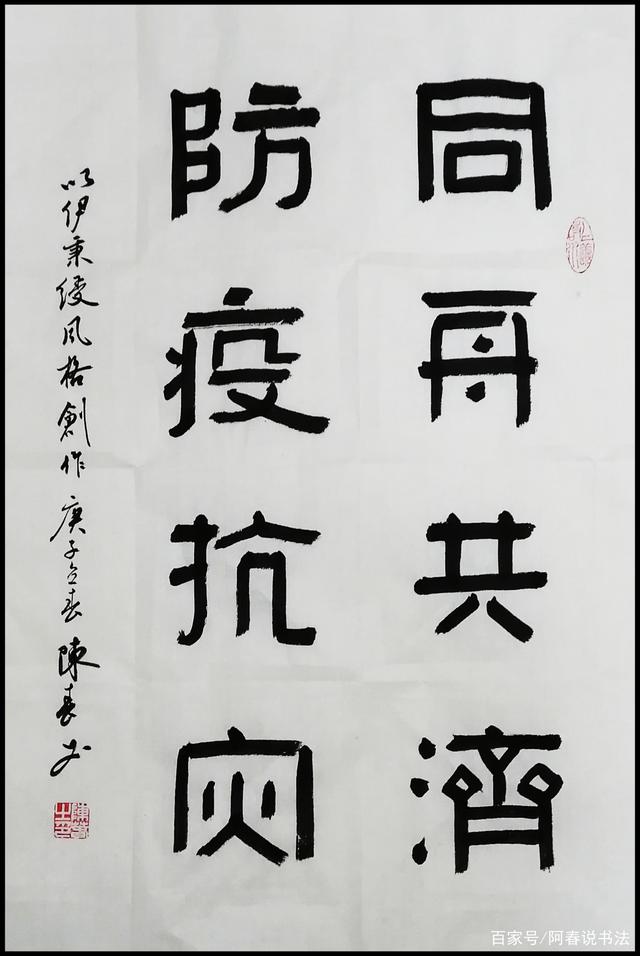 同舟共濟
防疫抗灾
以伊秉绶风格創作 庚子立春 陳春书
百家号/阿春说书法